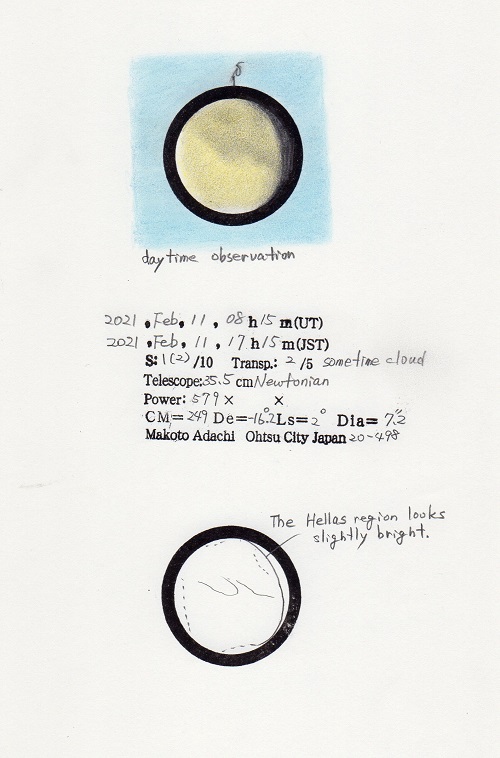 S
daytime observation
2021, Feb, 11, 08 h 15 m (UT)
2021, Feb, 11, 17 h 15 m (JST)
S: 1(2) /10 Transp.: 2 /5 sometime cloud
Telescope: 35.5 cm Newtonian
Power: 579 × ×
CM= 249 De= -16.2° Ls= 2° Dia= 7.2"
Makoto Adachi Ohtsu City Japan 20-498
The Hellas region looks
slightly bright.